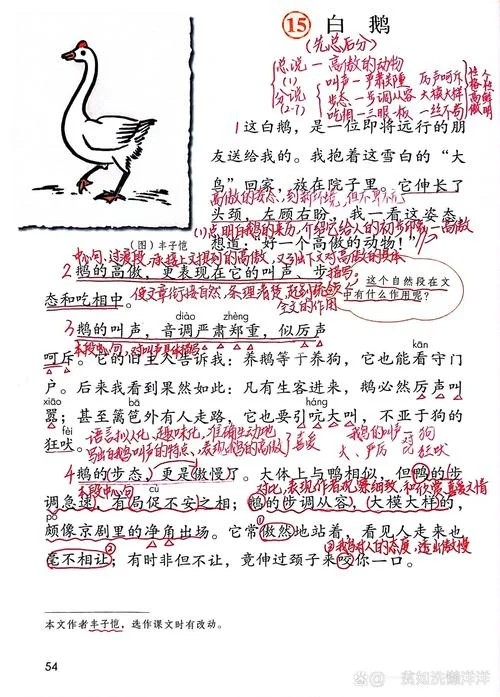 15 白 鹅
(先总后分)
总说—高傲的动物
(1)
分说
(2-7)
叫声—严肃郑重 厉声呵斥
步态—步调从容 大模大样
吃相—三眼一板 一丝不苟
性格鲜明
1这白鹅，是一位即将远行的朋
友送给我的。我抱着这雪白的“大
鸟”回家，放在院子里。它伸长了
头颈，左顾右盼，我一看这姿态，
想道：“好一个高傲的动物！”
(图) 丰子恺
2鹅的高傲，更表现在它的叫声、步
态和吃相中。
这个自然段在文
中有什么作用呢？
使文章衔接自然，条理清楚
全文的作用
3鹅的叫声，音调严肃郑重，似厉声
diào zhèng
呵斥。它的旧主人告诉我：养鹅等于养狗，它也能看守门
kān
户。后来我看到果然如此：凡有生客进来，鹅必然厉声叫
xiāo háng
嚣；甚至篱笆外有人走路，它也要引吭大叫，不亚于狗的
fèi
狂吠。
语言拟人化、趣味化，准确生动地
写出白鹅叫声的特点，表现鹅的高傲
喜爱
4鹅的步态，更是傲慢了。大体上与鸭相似，但鸭的步
本段中心句
cù
调急速，有局促不安之相；鹅的步调从容，大模大样的，
pō
颇像京剧里的净角出场。它常傲然地站着，看见人走来也
毫不相让；有时非但不让，竟伸过颈子来咬你一口。
本文作者丰子恺，选作课文时有改动。
54
一贫如洗懒洋洋